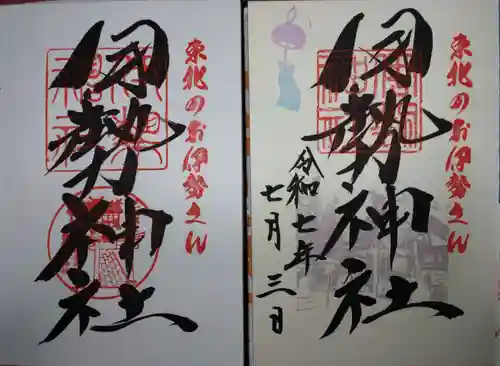 東北のお伊勢さん
伊勢神社
令和七年
七月三日
東北のお伊勢さん
伊勢神社